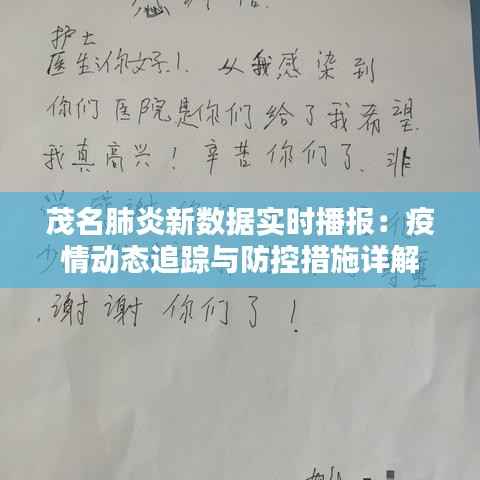 护士
医生:你好!. 从我感染到
你们医院是你们给了我希望
我真高兴！辛苦你们了. 非
茂名肺炎新数据实时播报：疫
情动态追踪与防控措施详解
谢谢你们了！